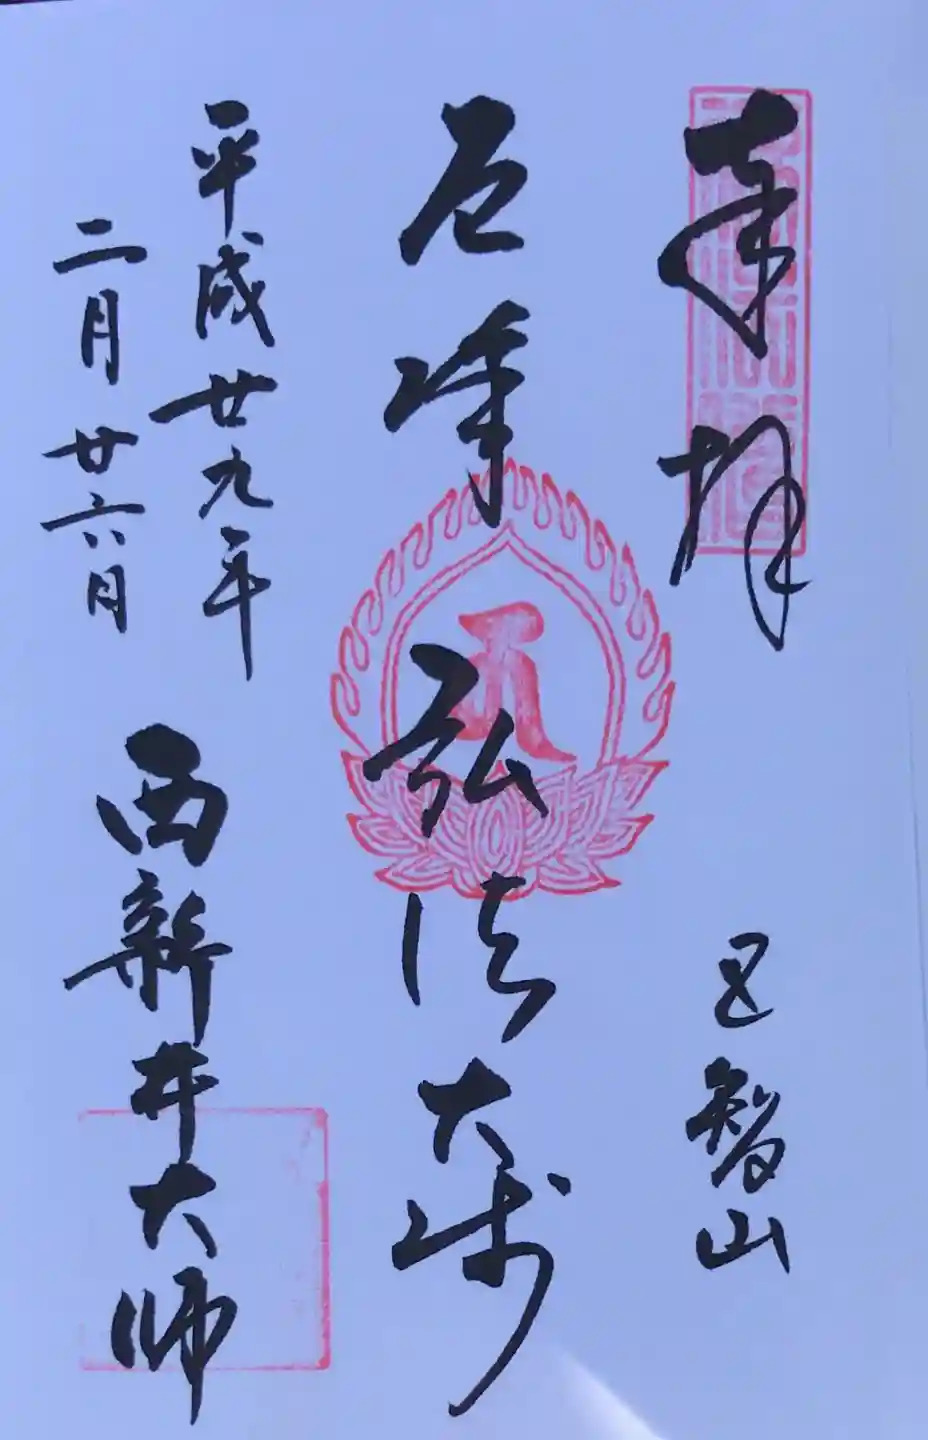 奉拝
五智山
厄除
弘法大師
平成廿九年
二月廿六日
西新井大師